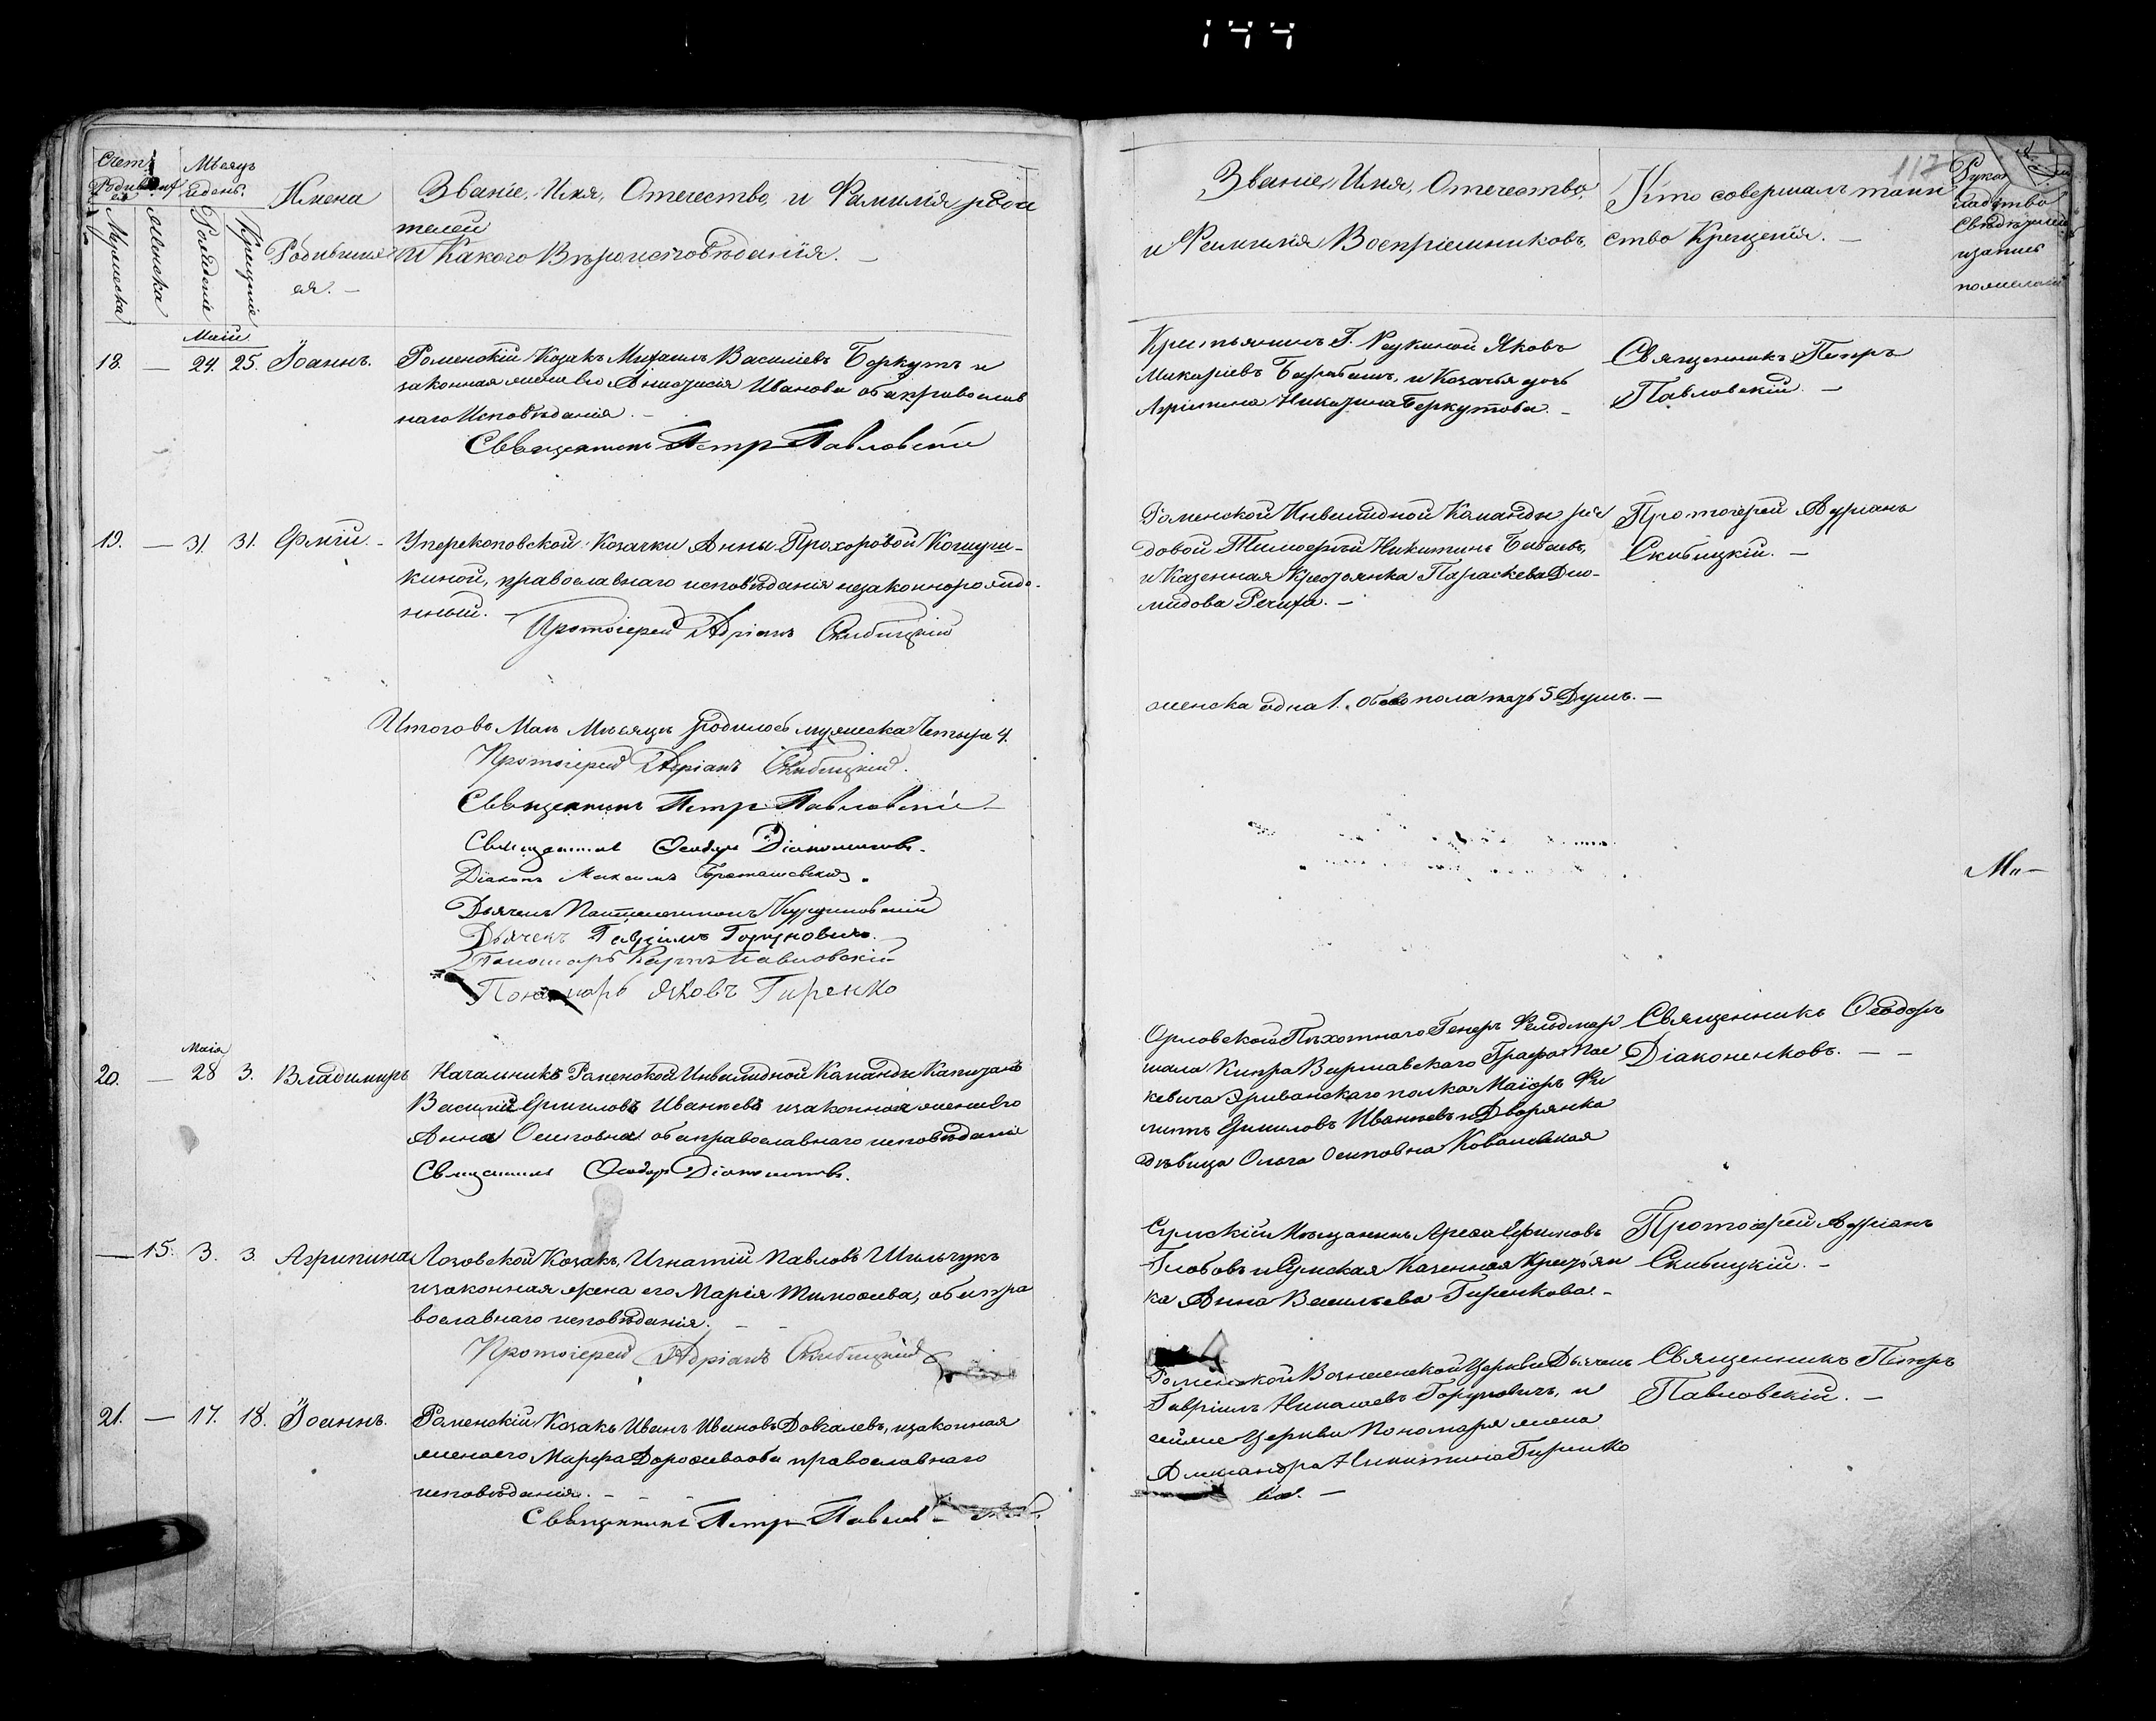 144
117
Счетъ
Родивших
ся
Мѣсяцъ
и день.
Имена
Званіе, Имя, Отечество, и Фамилія роди
телей
Мужеска
Женска
Рожденія
Крещенія
Родивших
ся. —
и Какого Вѣроисповѣданія. —
Званіе, Имя, Отечество,
и Фамилія Воспріемниковъ.
Кто совершалъ таин
ство Крещенія. —
Рукопри
кладство
Свѣдѣтелей
записи
по желанію
Маій
18. — 24. 25. Іоаннъ.
Роменскій Козакъ Михаилъ Василіевъ Беркутъ и
законная жена его Анастасія Иванова оба православ
наго Исповѣданія. —
Священникъ Петръ Павловскій
Крестьянинъ Г. Яковъ
Макаріевъ Барабашъ, и Козачья дочь
Агрипина Никитина Беркутова. —
Священникъ Петръ
Павловскій. —
19. — 31. 31. Ермій. —
Перекоповской Козачки Анны Прохоровой Кошу-
киной, православнаго исповѣданія незаконнорожде-
нный. —
Протоіерей Адріанъ Скибицкій
Роменской Инвалидной Команды ря
довой Тимофей Никитинъ Бабаевъ,
и Казенная Крестьянка Параскева Дио-
мидова Речита. —
Протоіерей Адріанъ
Скибицкій. —
Итого въ Маѣ Мѣсяцѣ родилось мужеска Четыре 4.
женска одна 1. обоего пола пять 5 Душъ. —
Протоіерей Адріанъ Скибицкій.
Священникъ Петръ Павловскій —
Священникъ Ѳеодоръ Діаконенковъ.
Діаконъ Максимъ
Дьячекъ Пантелеимонъ
Дьячекъ Гавріилъ Горуновичъ.
Пономарь Карпъ Павловскій
Пономарь Яковъ Гиренко
Маія
20. — 28 3. Владимиръ
Начальникъ Роменской Инвалидной Команды Капитанъ
Василій Ермиловъ Иваненъ и законная жена его
Анна Осиповна оба православнаго исповѣданія
Священникъ Ѳеодоръ Діаконенковъ.
Орловскаго Пѣхотнаго Генерл Фельдмар
шала Князя Варшавскаго Графа Пас
кевича Эриванскаго полка Маіоръ Фи
липъ Ермиловъ Иваненъ и Дворянка
дѣвица Ольга Осиповна Ковалевская
Священникъ Ѳеодоръ
Діаконенковъ. — —
— 15. 3. 3 Агрипина
Лозовской Козакъ, Игнатій Павловъ Шильчукъ
и законная жена его Марія Тимофеева, оба пра
вославнаго исповѣданія. —
Протоіерей Адріанъ Скибицкій
Сумскій Мѣщанинъ Арефа Ефимовъ
Глобовъ и Сумская Казенная Крестьян
ка Анна Васильева Гиренкова. —
Протоіерей Адріанъ
Скибицкій. —
21. — 17. 18. Іоаннъ.
Роменскій Козакъ Иванъ Ивановъ Довгалевъ, и законная
жена его Марфа Дорофева оба православнаго
исповѣданія. —
Священникъ Петръ
Роменской Вознесенской Церкви Дьячекъ
Гавріилъ Горуновичъ, и
Церкви Пономаря жена
Александра Никитина Гиренко
ва. —
Священникъ Петръ
Павловскій. —